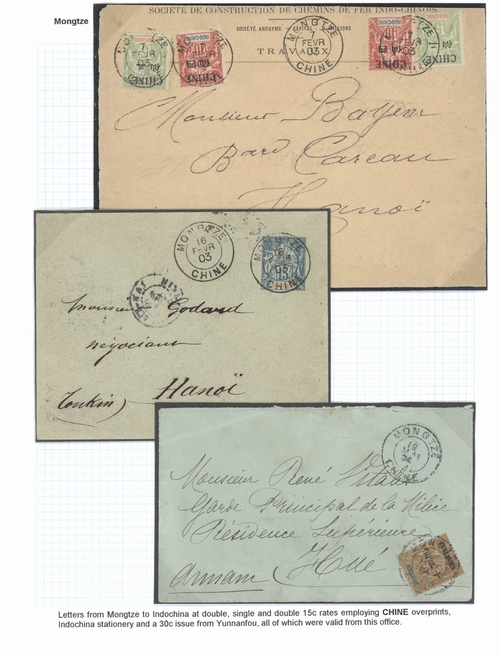 Mongtze
SOCIÉTÉ DE CONSTRUCTION DE CHEMINS DE FER INDO-CHINOIS
SOCIÉTÉ ANONYME
TRAVAUX
MONGTZE
7
FEVR
03
CHINE
MONGTZE
CHINE
MONGTZE
7
FEVR
03
CHINE
CHINE
CHINE
Monsieur
Bard Careau
Hanoï
MONGTZE
16
FEVR
03
CHINE
MONGTZE
CHINE
15
Monsieur Godard
négociant
Hanoï
Tonkin)
MONGTZE
CHINE
Monsieur René Vitalis
Garde Principal de la Milice
Résidence Supérieure
Hué
Annam)
Letters from Mongtze to Indochina at double, single and double 15c rates employing CHINE overprints,
Indochina stationery and a 30c issue from Yunnanfou, all of which were valid from this office.